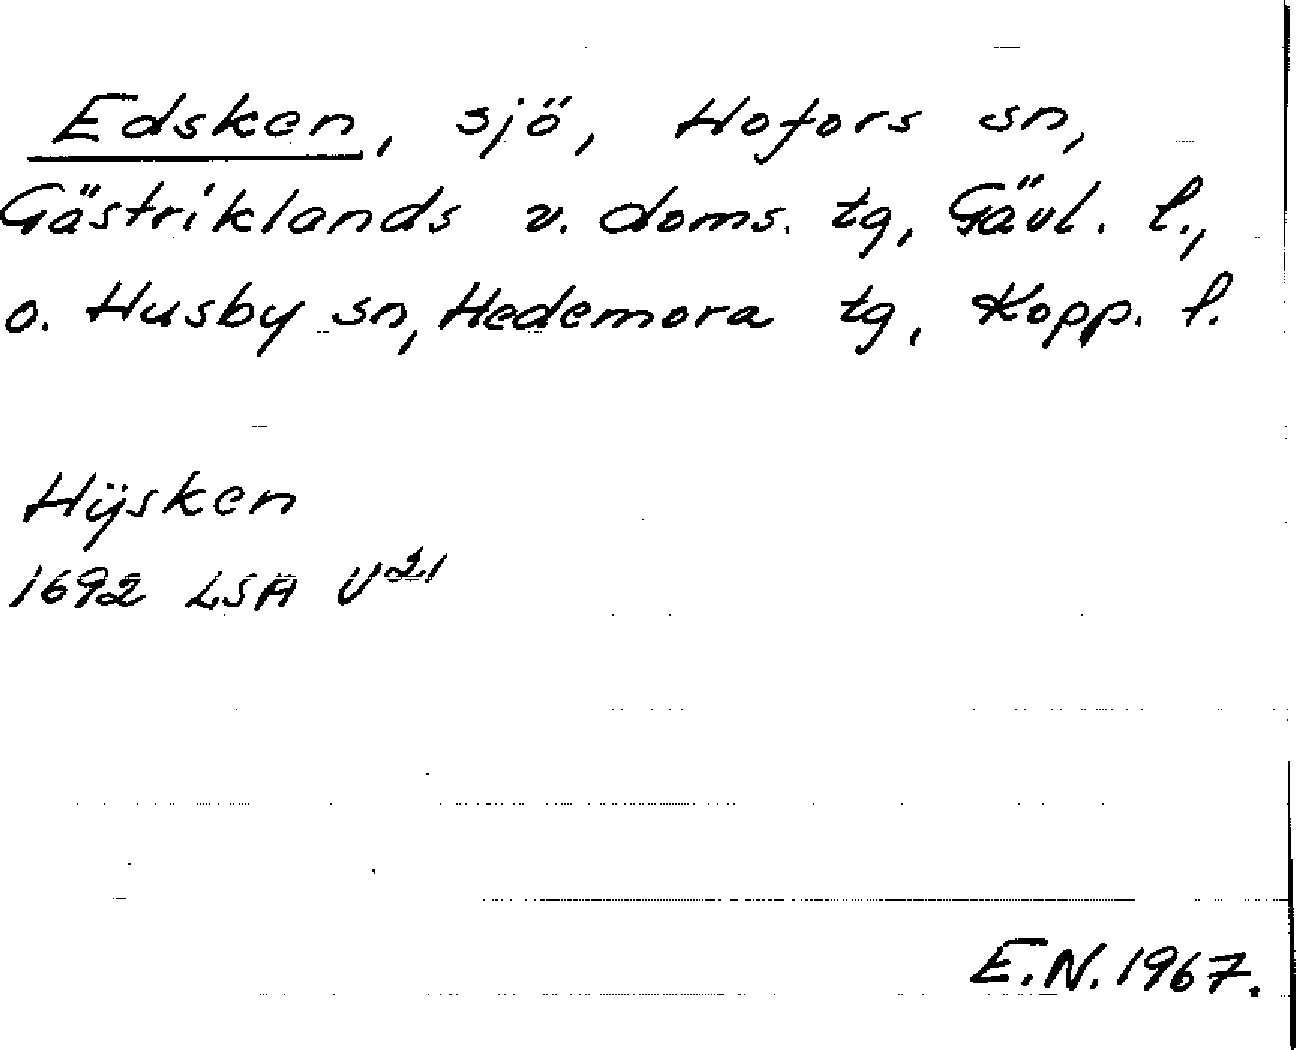 Edsken, sjö, Hofors sn,
Gästriklands v. doms. tg, Gävl. l.,
o. Husby sn, Hedemora tg, Kopp. l.
Hÿsken
1692 LSA U²¹
E.N. 1967.